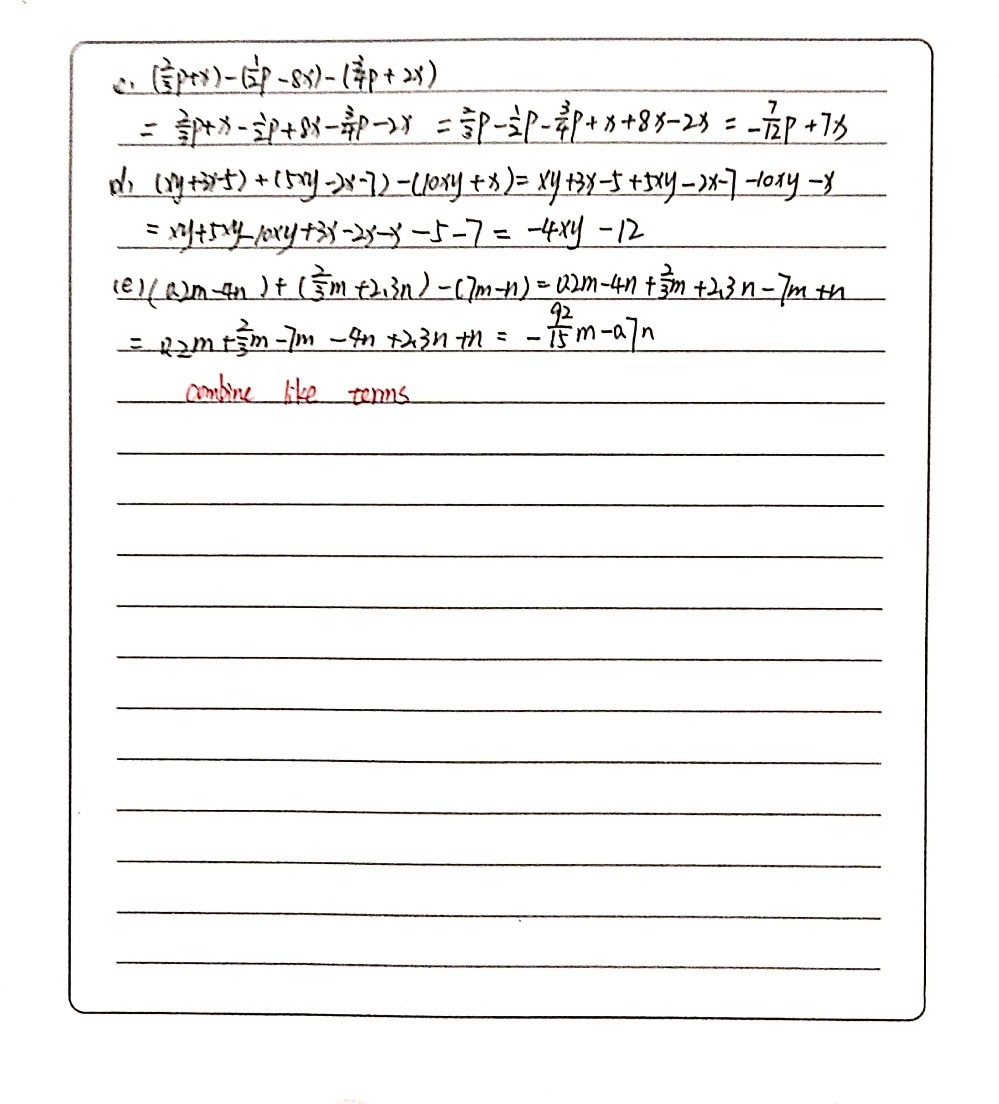 c. (2/3p+x)-(1/2p-8x)-(3/4p+2x)
= 2/3p+x-1/2p+8x-3/4p-2x = 2/3p-1/2p-3/4p+x+8x-2x = -7/12p+7x
d. (xy+3x-5)+(5xy-2x-7)-(10xy+x)=xy+3x-5+5xy-2x-7-10xy-x
=xy+5xy-10xy+3x-2x-x-5-7= -4xy-12
(e)(0.2m-4n)+(2/3m+2.3n)-(7m-n)=0.2m-4n+2/3m+2.3n-7m+n
= 0.2m+2/3m-7m-4n+2.3n+n = -92/15m-0.7n
combine like terms